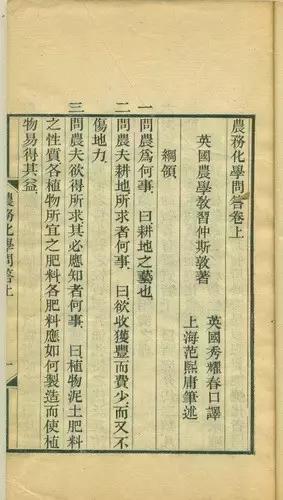 農務化學問答卷上
英國農學教習仲斯敦著
英國秀耀春口譯
上海范熙庸筆述
綱領
一 問農爲何事 曰耕地之藝也
二 問農夫耕地所求者何事 曰欲收獲豐而費少而又不
傷地力
三 問農夫欲得所求其必應知者何事 曰植物泥土肥料
之性質各植物所宜之肥料各肥料應如何製造而使植
物易得其益
農務化學問答上
一